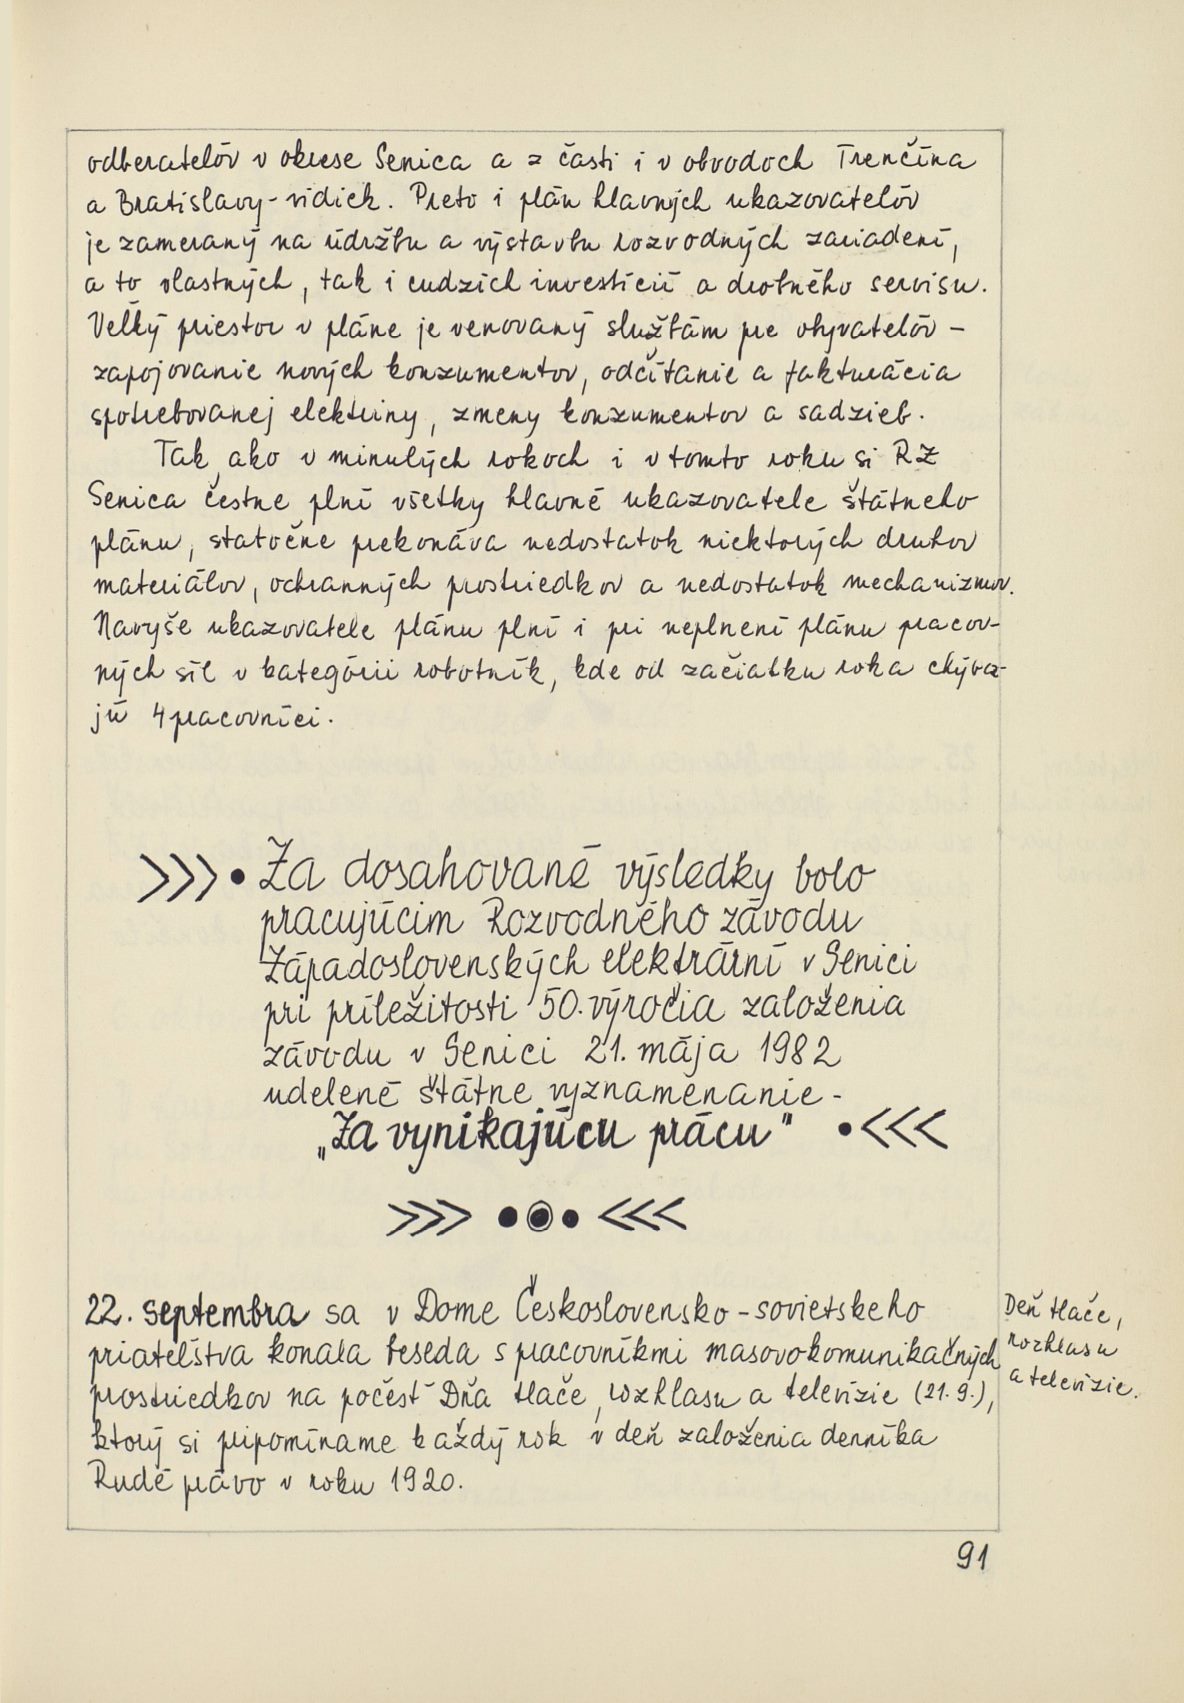 odberatelóv v okrese Senica a z časti i v obvodoch Trenčína
a Bratislavy-vidiek. Preto i plán hlavných ukazovatelóv
je zameraný na údržbu a výstavbu rozvodných zariadení,
a to vlastných, tak i cudzích investícií a drobného servisu.
Velký priestor v pláne je venovaný službám pre obyvatelóv –
zapojovanie nových konzumentov, odčítanie a fakturácia
spotrebovanej elektriny, zmeny konzumentov a sadzieb.
Tak ako v minulých rokoch i v tomto roku si RZ
Senica čestne plní všetky hlavné ukazovatele štátneho
plánu, statočne prekonáva nedostatok niektorých druhov
materiálov, ochranných prostriedkov a nedostatok mechanizmov.
Navyše ukazovatele plánu plní i pri neplnení plánu pracov-
ných síl v kategórii robotník, kde od začiatku roka chýba-
jú 4 pracovníci.
>>>• Za dosahované výsledky bolo
pracujúcim Rozvodného závodu
Západoslovenských elektrární v Senici
pri príležitosti 50. výročia založenia
závodu v Senici 21. mája 1982
udelené štátne vyznamenanie -
„Za vynikajúcu prácu" •<<<
22. septembra sa v Dome Československo-sovietskeho
priatelštva konala beseda s pracovníkmi masovokomunikačných
prostriedkov na počesť Dňa tlače, rozhlasu a televízie (21.9.),
ktorý si pripomíname každý rok v deň založenia denníka
Rudé právo v roku 1920.
Deň tlače,
rozhlasu
a televízie.
91